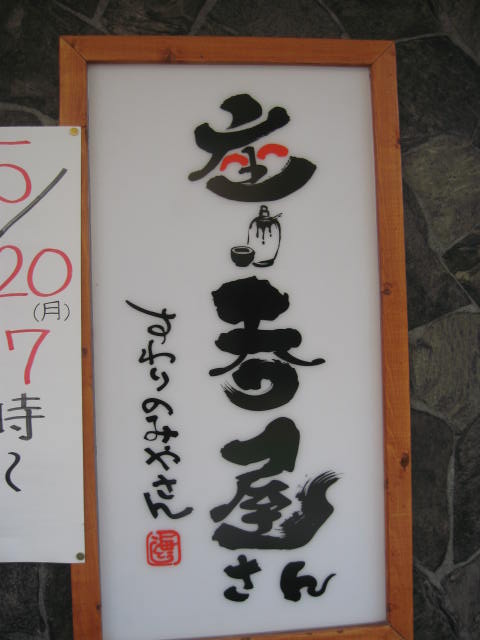 座り呑屋
さん
すわりのみやさん
5/
20
(月)
7
時
～